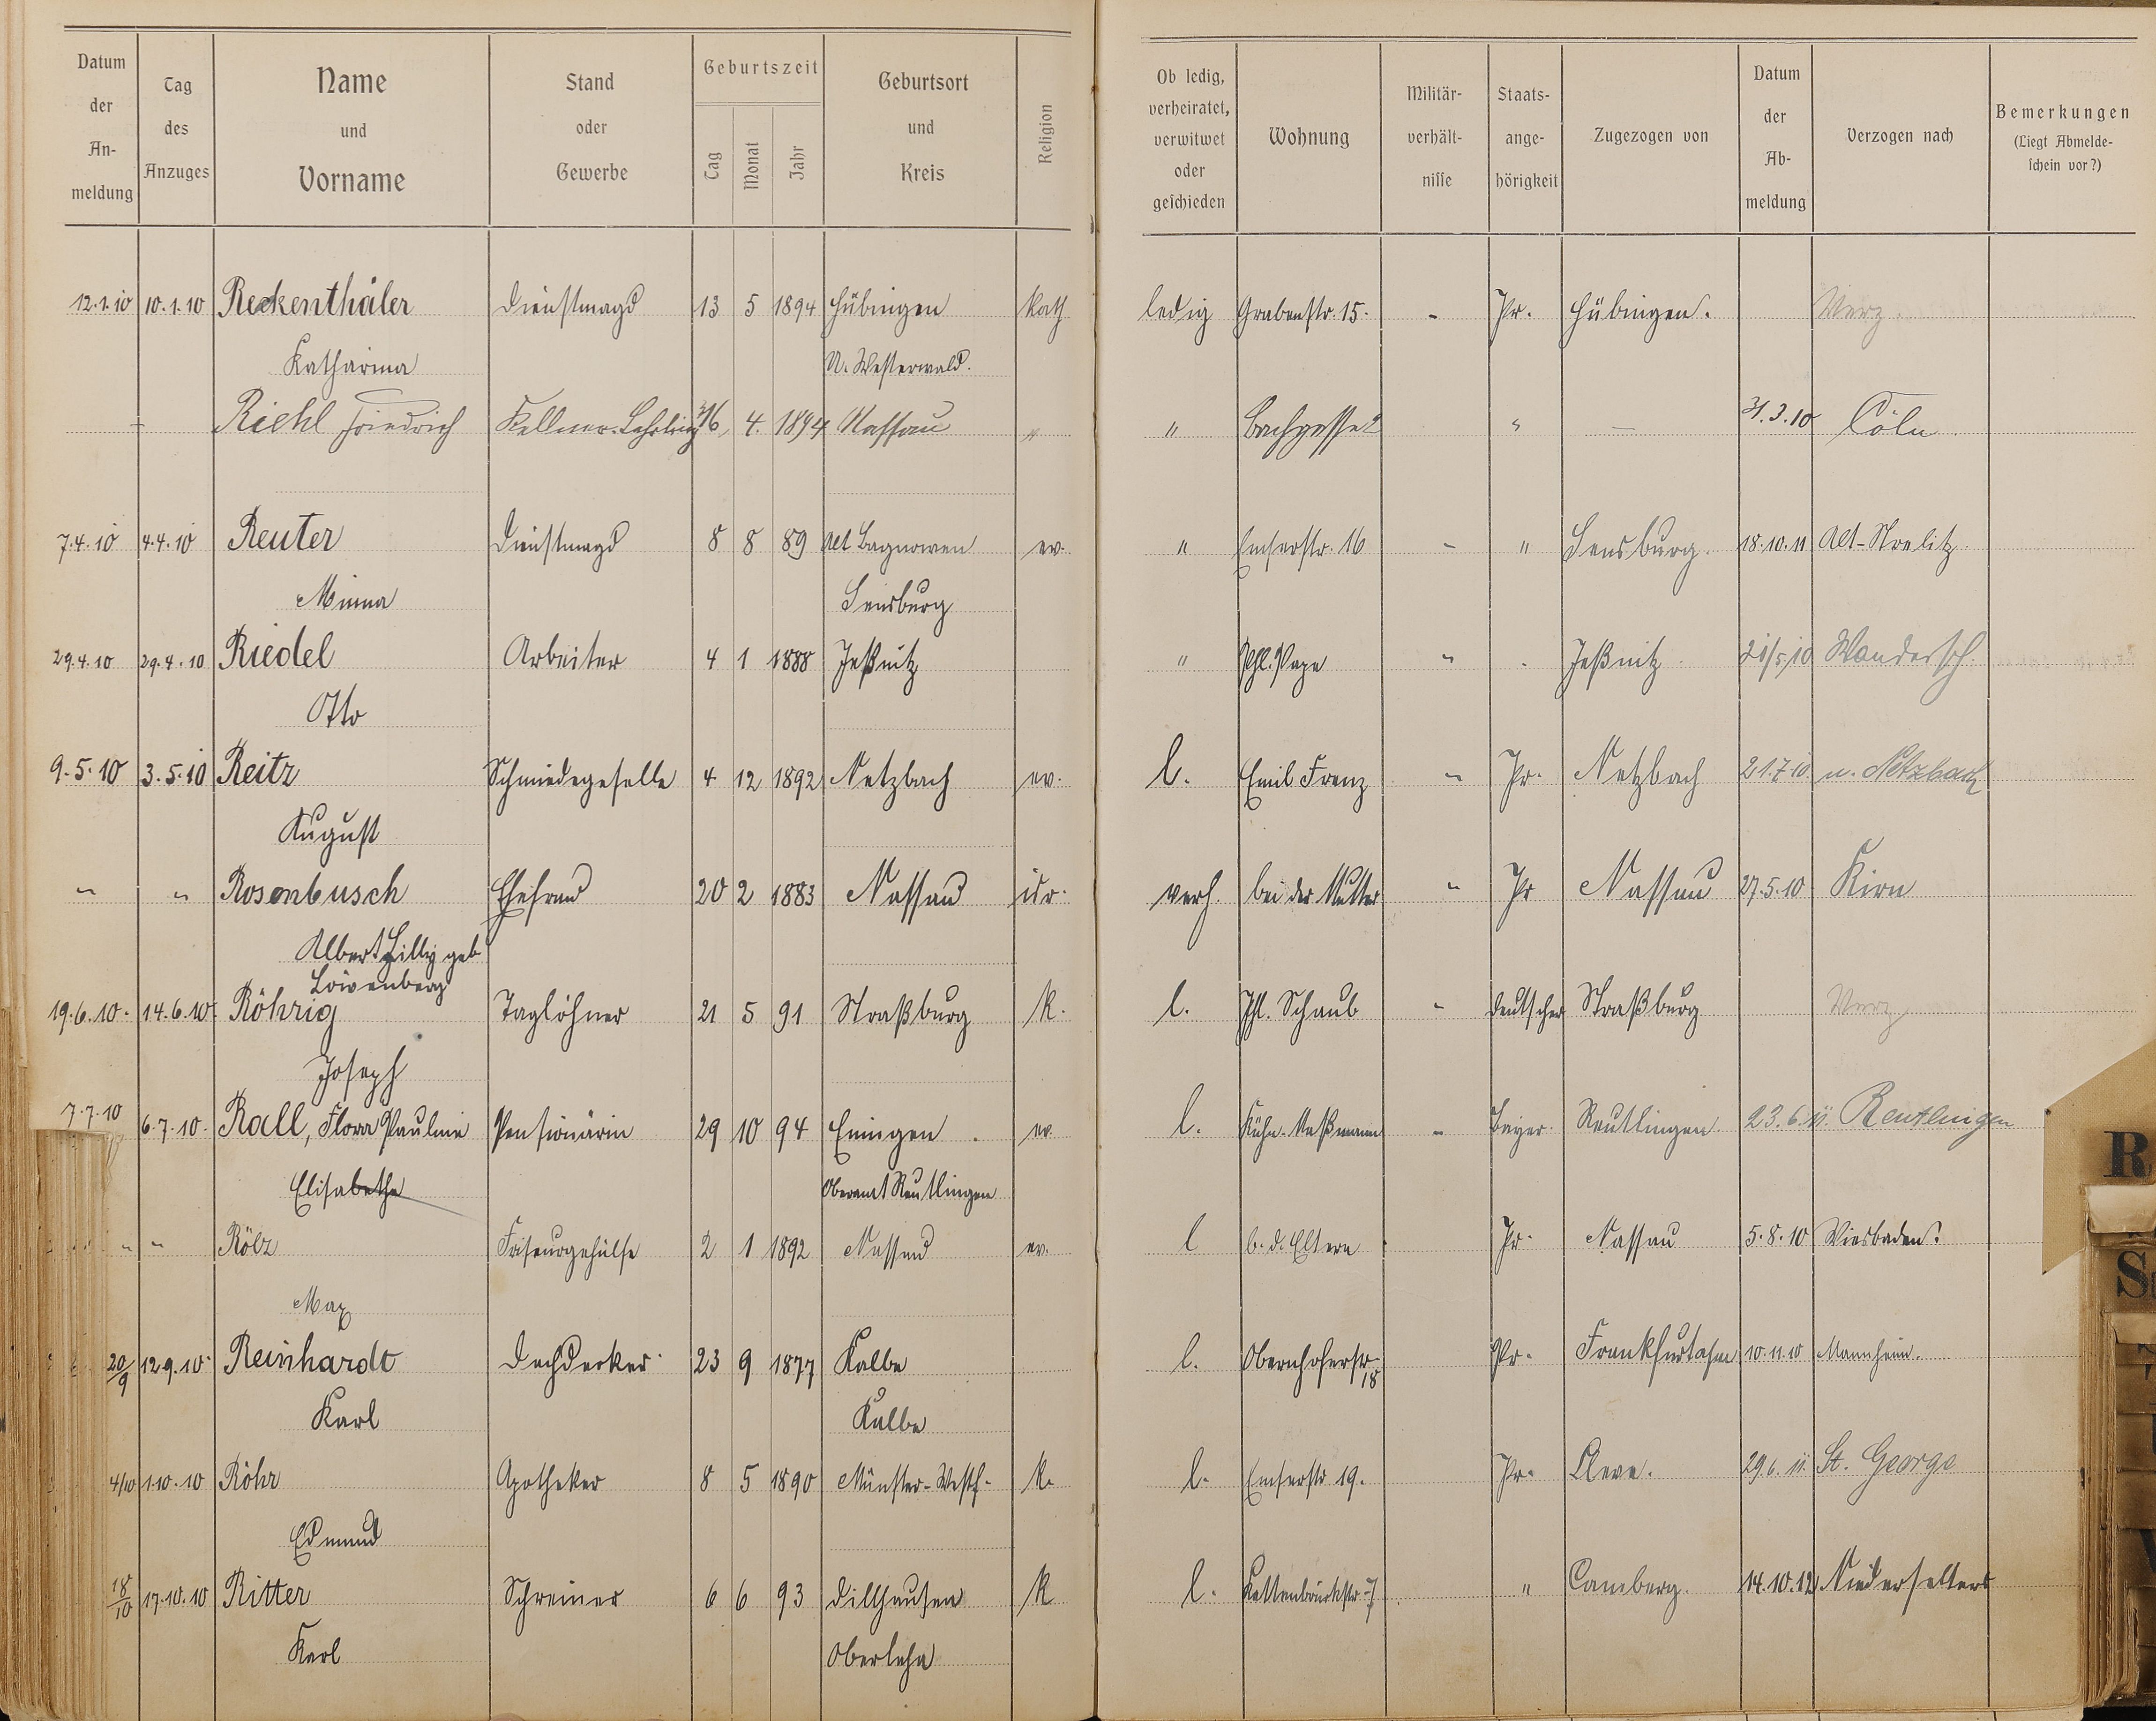 Datum der Anmeldung | Tag des Anzuges | Name und Vorname | Stand oder Gewerbe | Geburtszeit Tag Monat Jahr | Geburtsort und Kreis | Religion | Ob ledig, verheiratet, verwitwet oder geschieden | Wohnung | Militärverhältnisse | Staatsangehörigkeit | Zugezogen von | Datum der Abmeldung | Verzogen nach | Bemerkungen (Liegt Abmeldeschein vor?)
12.1.10 10.1.10 Reckenthäler Dienstmagd 13 5 1894 Hübingen Kath ledig Grabenstr. 15. - Pr. Hübingen. Verz.
Katharina U. Westerwald.
- Riehl Friedrich Kellner-Lehrling 16, 4. 1894 Nassau " " Bachgasse 2 " — 31.3.10 Cöln
7.4.10 4.4.10 Reuter Dienstmagd 8 8 89 Alt Bagnowen ev. " Emserstr. 16 - " Sensburg. 18.10.11 Alt-Strelitz
Minna Sensburg
29.4.10 29.4.10 Riedel Arbeiter 4 1 1888 Jeßnitz " Phl. Pape " . Jeßnitz 21/5/10 Wandersch.
Otto
9.5.10 3.5.10 Reitz Schmiedegeselle 4 12 1892 Netzbach ev. l. Emil Frenz " Pr. Netzbach 21.7.10 n. Netzbach
August
" " Rosenbusch Ehefrau 20 2 1883 Nassau isr. verh. bei der Mutter " Pr Nassau 27.5.10 Kirn
Albert Lilly geb
Löwenberg
19.6.10. 14.6.10. Röhrig Taglöhner 21 5 91 Straßburg K. l. Phl. Schaub " deutscher Straßburg Verz
Joseph
7.7.10 6.7.10. Rall, Flora Pauline Pensionärin 29 10 94 Eningen ev. l. Kühn-Maßmann - Bayer Reutlingen 23.6.11. Reutlingen
Elisabethe Oberamt Reutlingen
" " Rölz Friseurgehülfe 2 1 1892 Nassau ev. l b. d. Eltern Pr. Nassau 5.8.10 Wiesbaden.
Max
20/9 12.9.10 Reinhardt Dachdecker 23 9 1877 Kalbe l. Obernhoferstr. 18 Pr. Frankfurt a/m 10.11.10 Mannheim.
Karl Kalbe
4/10 1.10.10 Röhr Apotheker 8 5 1890 Münster-Westf. K. l. Emserstr 19. Pr. Cleve. 29.6.11 St. George
Edmund
18/10 17.10.10 Ritter Schreiner 6 6 93 Dillhausen K l. Kettenbrückstr. 7 " Camberg. 14.10.12 Niederselters
Karl Oberlahn
R